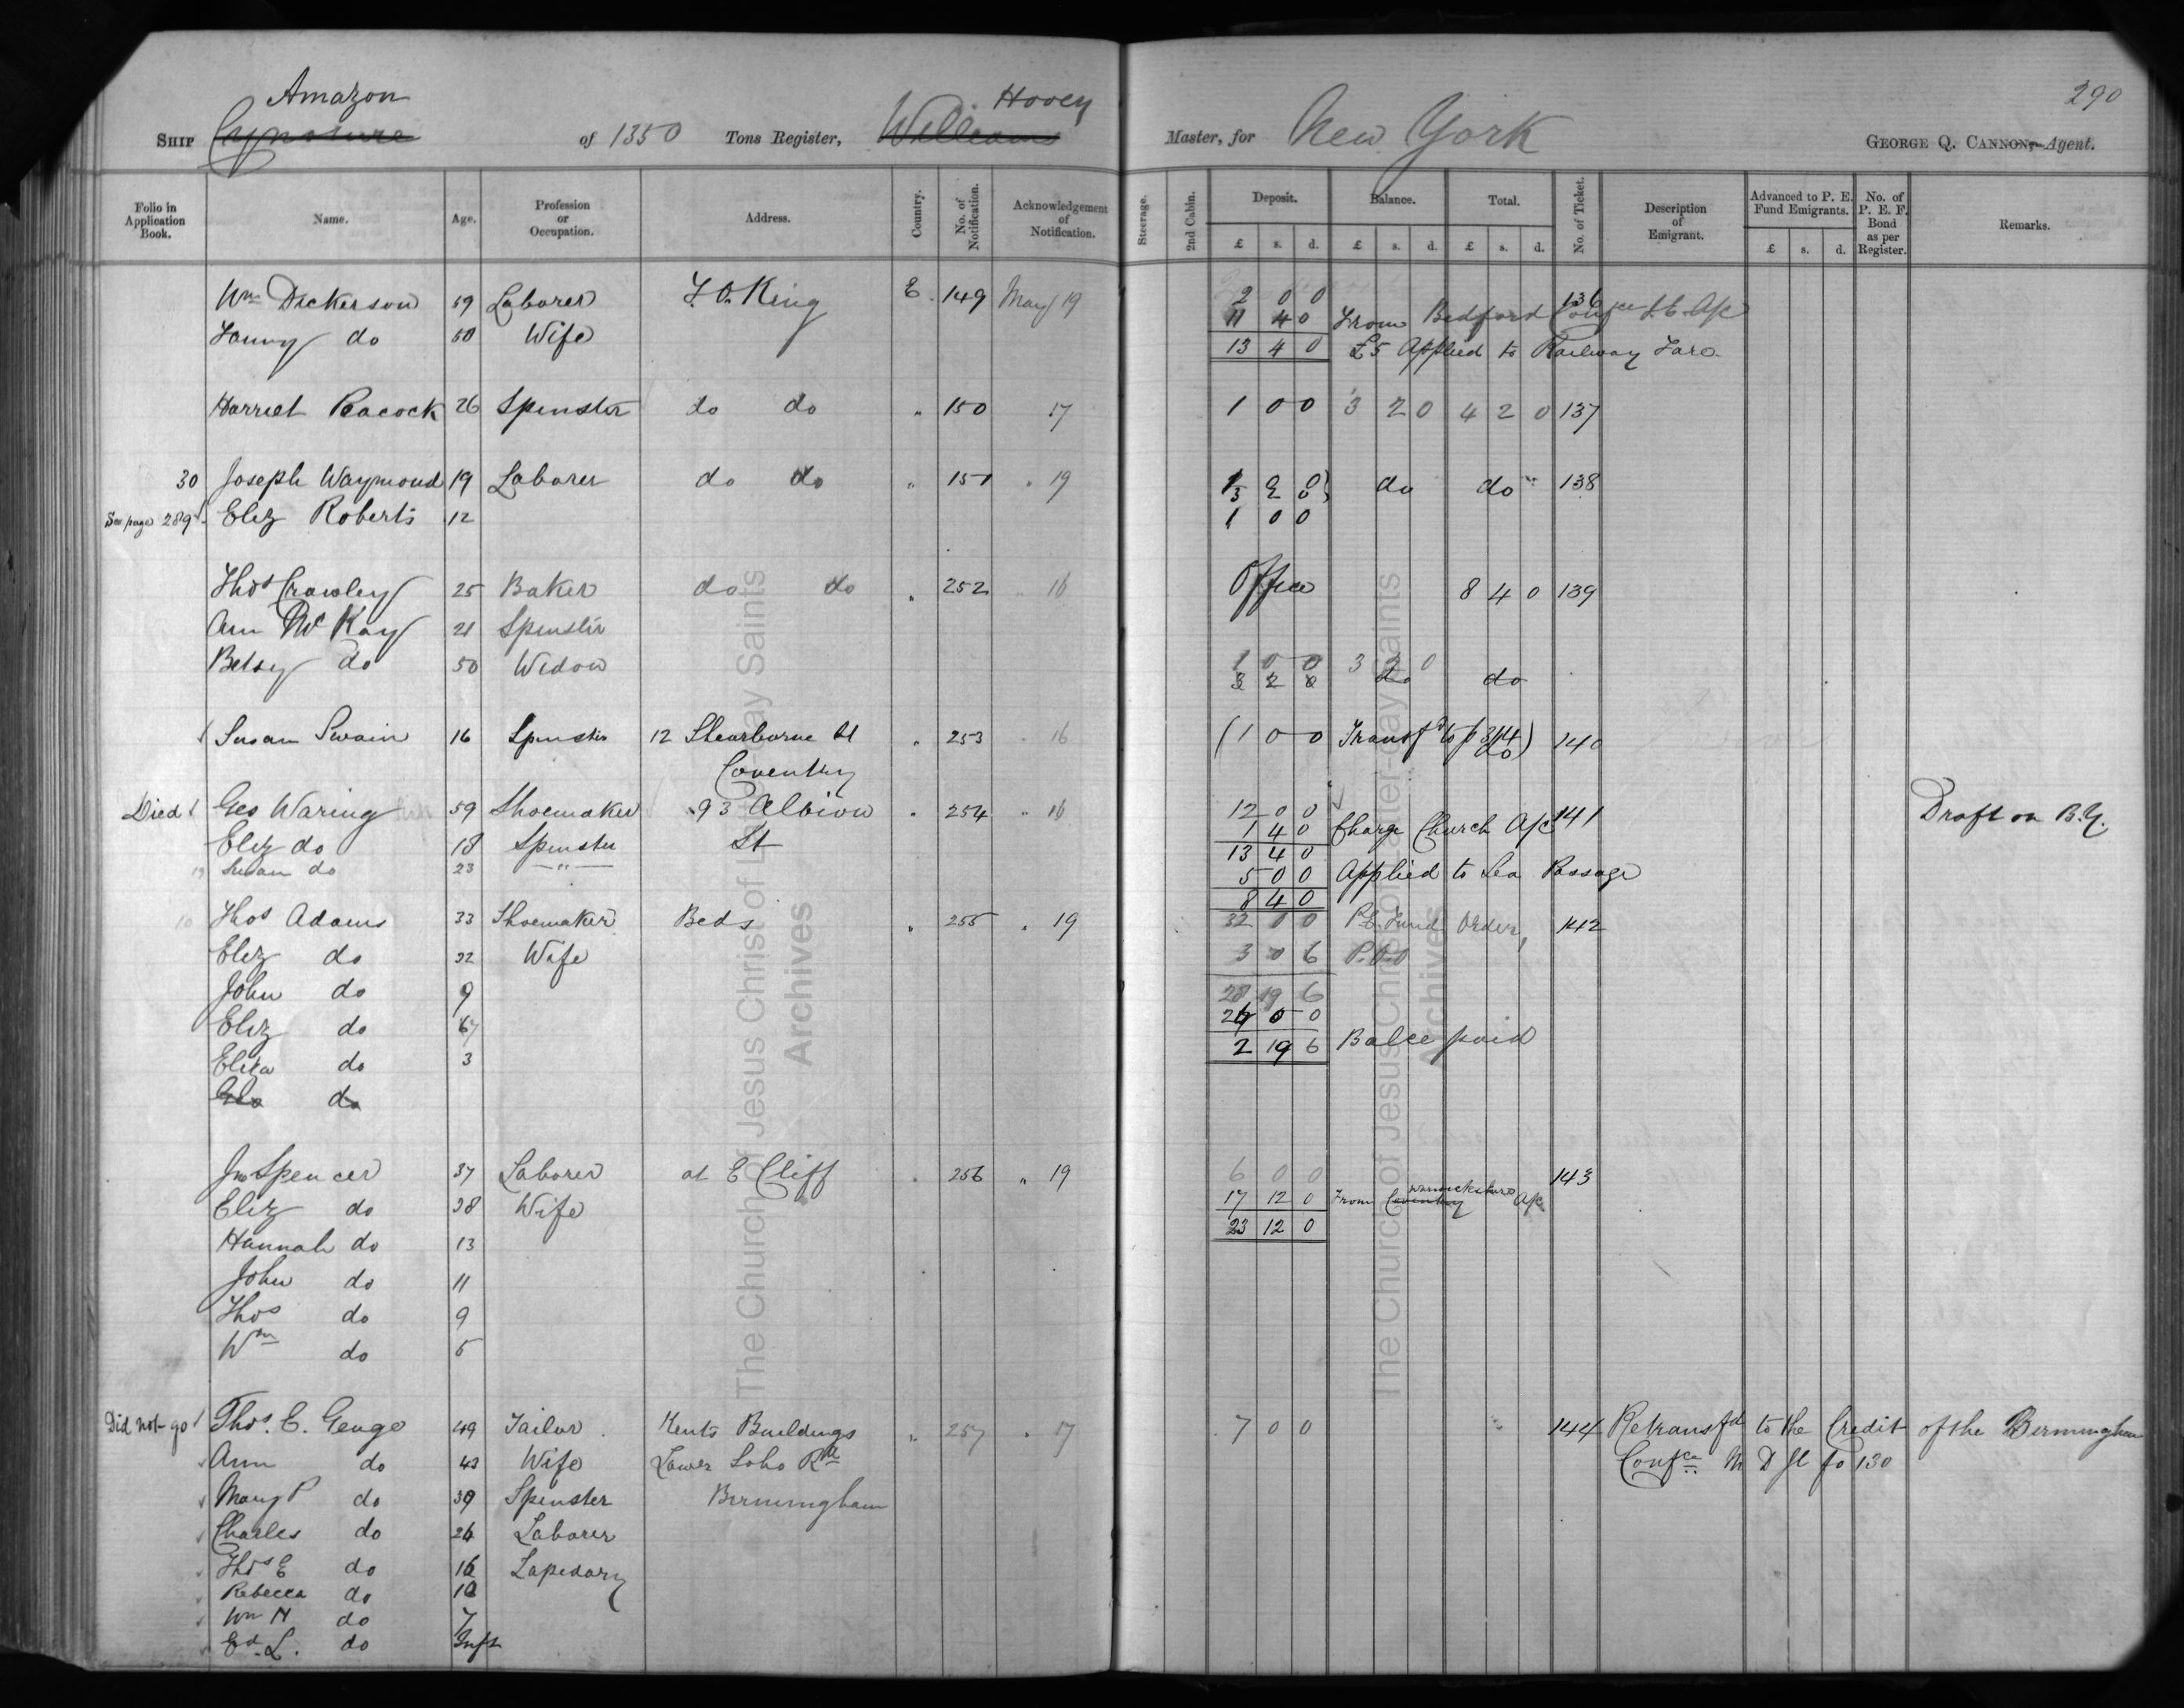 290
Amazon Hovey
SHIP Cynosure of 1350 Tons Register, Williams Master, for New York GEORGE Q. CANNON, Agent.
Folio in Application Book. Name. Age. Profession or Occupation. Address. Country. No. of Notification. Acknowledgement of Notification. Steerage. 2nd Cabin. Deposit. Balance. Total. No. of Ticket. Description of Emigrant. Advanced to P. E. Fund Emigrants. No. of P. E. F. Bond as per Register. Remarks.
£ s. d. £ s. d. £ s. d. £ s. d.
Wm Dickerson 59 Laborer F. O. King E. 149 May 19 2 0 0 136
11 4 0 From Bedford Confce A/c
Fanny do 50 Wife 13 4 0 £5 Applied to Railway Fare
Harriet Peacock 26 Spinster do do " 150 17 1 0 0 3 2 0 4 2 0 137
30 Joseph Waymond 19 Laborer do do " 151 " 19 do do 138
See page 289 Eliz Roberts 12 1 0 0
Thos Crawley 25 Baker do do " 252 " 16 Office 8 4 0 139
Ann Mc Kay 21 Spinster
Betsy do 50 Widow 1 0 0 3 2 0
3 2 0 do do
Susan Swain 16 Spinster 12 Shearburne St " 253 " 16 (1 0 0 Transfd to p 314) 140
Coventry
Died Geo Waring 59 Shoemaker 93 Albion " 254 " 16 12 0 0 141 Draft on B.Y.
1 4 0 Charge Church A/c
Eliz do 18 Spinster St 13 4 0
Susan do 23 " 5 0 0 Applied to Sea Passage
8 4 0
Thos Adams 33 Shoemaker Beds " 255 " 19 32 0 0 P.E. Fund Order, 142
Eliz do 32 Wife 3 0 6 P.O.O
John do 9 28 19 6
Eliz do 0 0
Eliza do 3 2 19 6 Balce paid
Geo do
Jno Spencer 37 Laborer at E Cliff " 256 " 19 6 0 0 143
Eliz do 38 Wife 17 12 0 From Coventry Warwickshire A/c
Hannah do 13 23 12 0
John do 11
Thos do 9
Wm do 5
Did not go Thos. C. Genge 49 Tailor Kents Buildings " 257 " 17 7 0 0 144 Retransfd to the Credit of the Birmingham
Ann do 43 Wife Lower Soho Rd Confce M D Jl fo 130
Mary P do 39 Spinster Birmingham
Charles do 24 Laborer
Thos E do 16 Lapidary
Rebecca do 10
Wm H do 7
Ed. L. do Inft
The Church of Jesus Christ of Latter-day Saints
Archives
The Church of Jesus Christ of Latter-day Saints
Archives